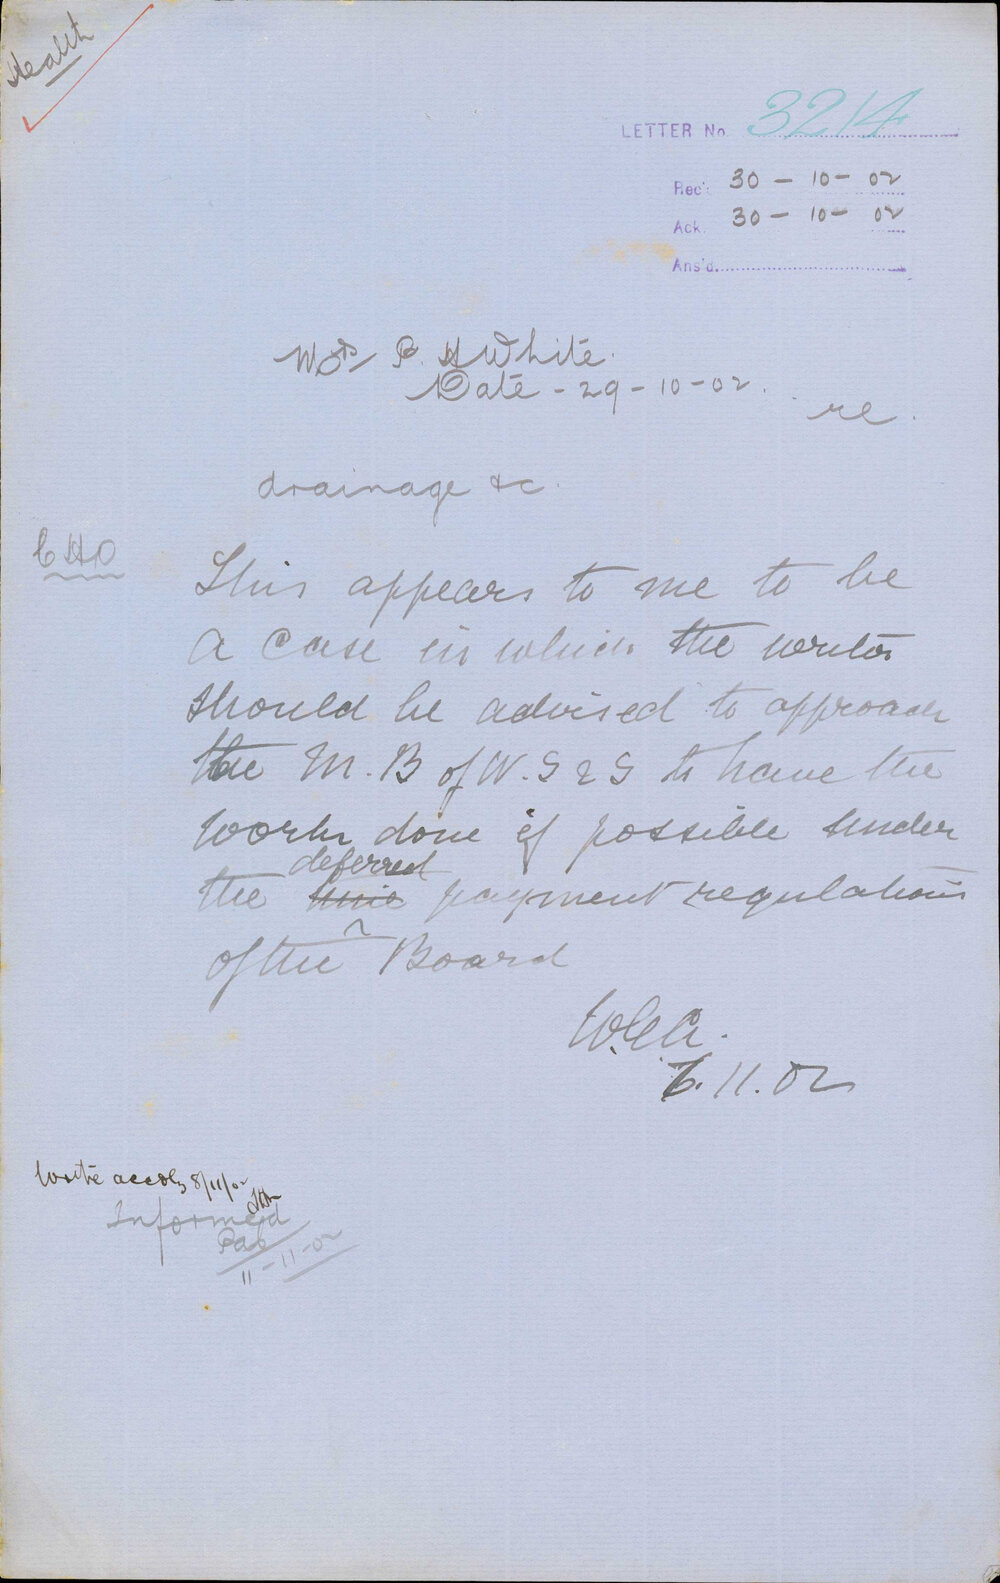 Health
LETTER No. 3214
Rec'd. 30-10-02
Ack. 30-10-02
Ans'd.
Mrs B. H White.
Date - 29-10-02.
re.
drainage &c.
CHO
This appears to me to be
a case in which the writer
should be advised to approach
the M.B of W.S & S to have the
work done if possible under
the deferred time payment regulations
of the Board
6.11.02
Write accdly 8/11/02
Informed
11-11-02